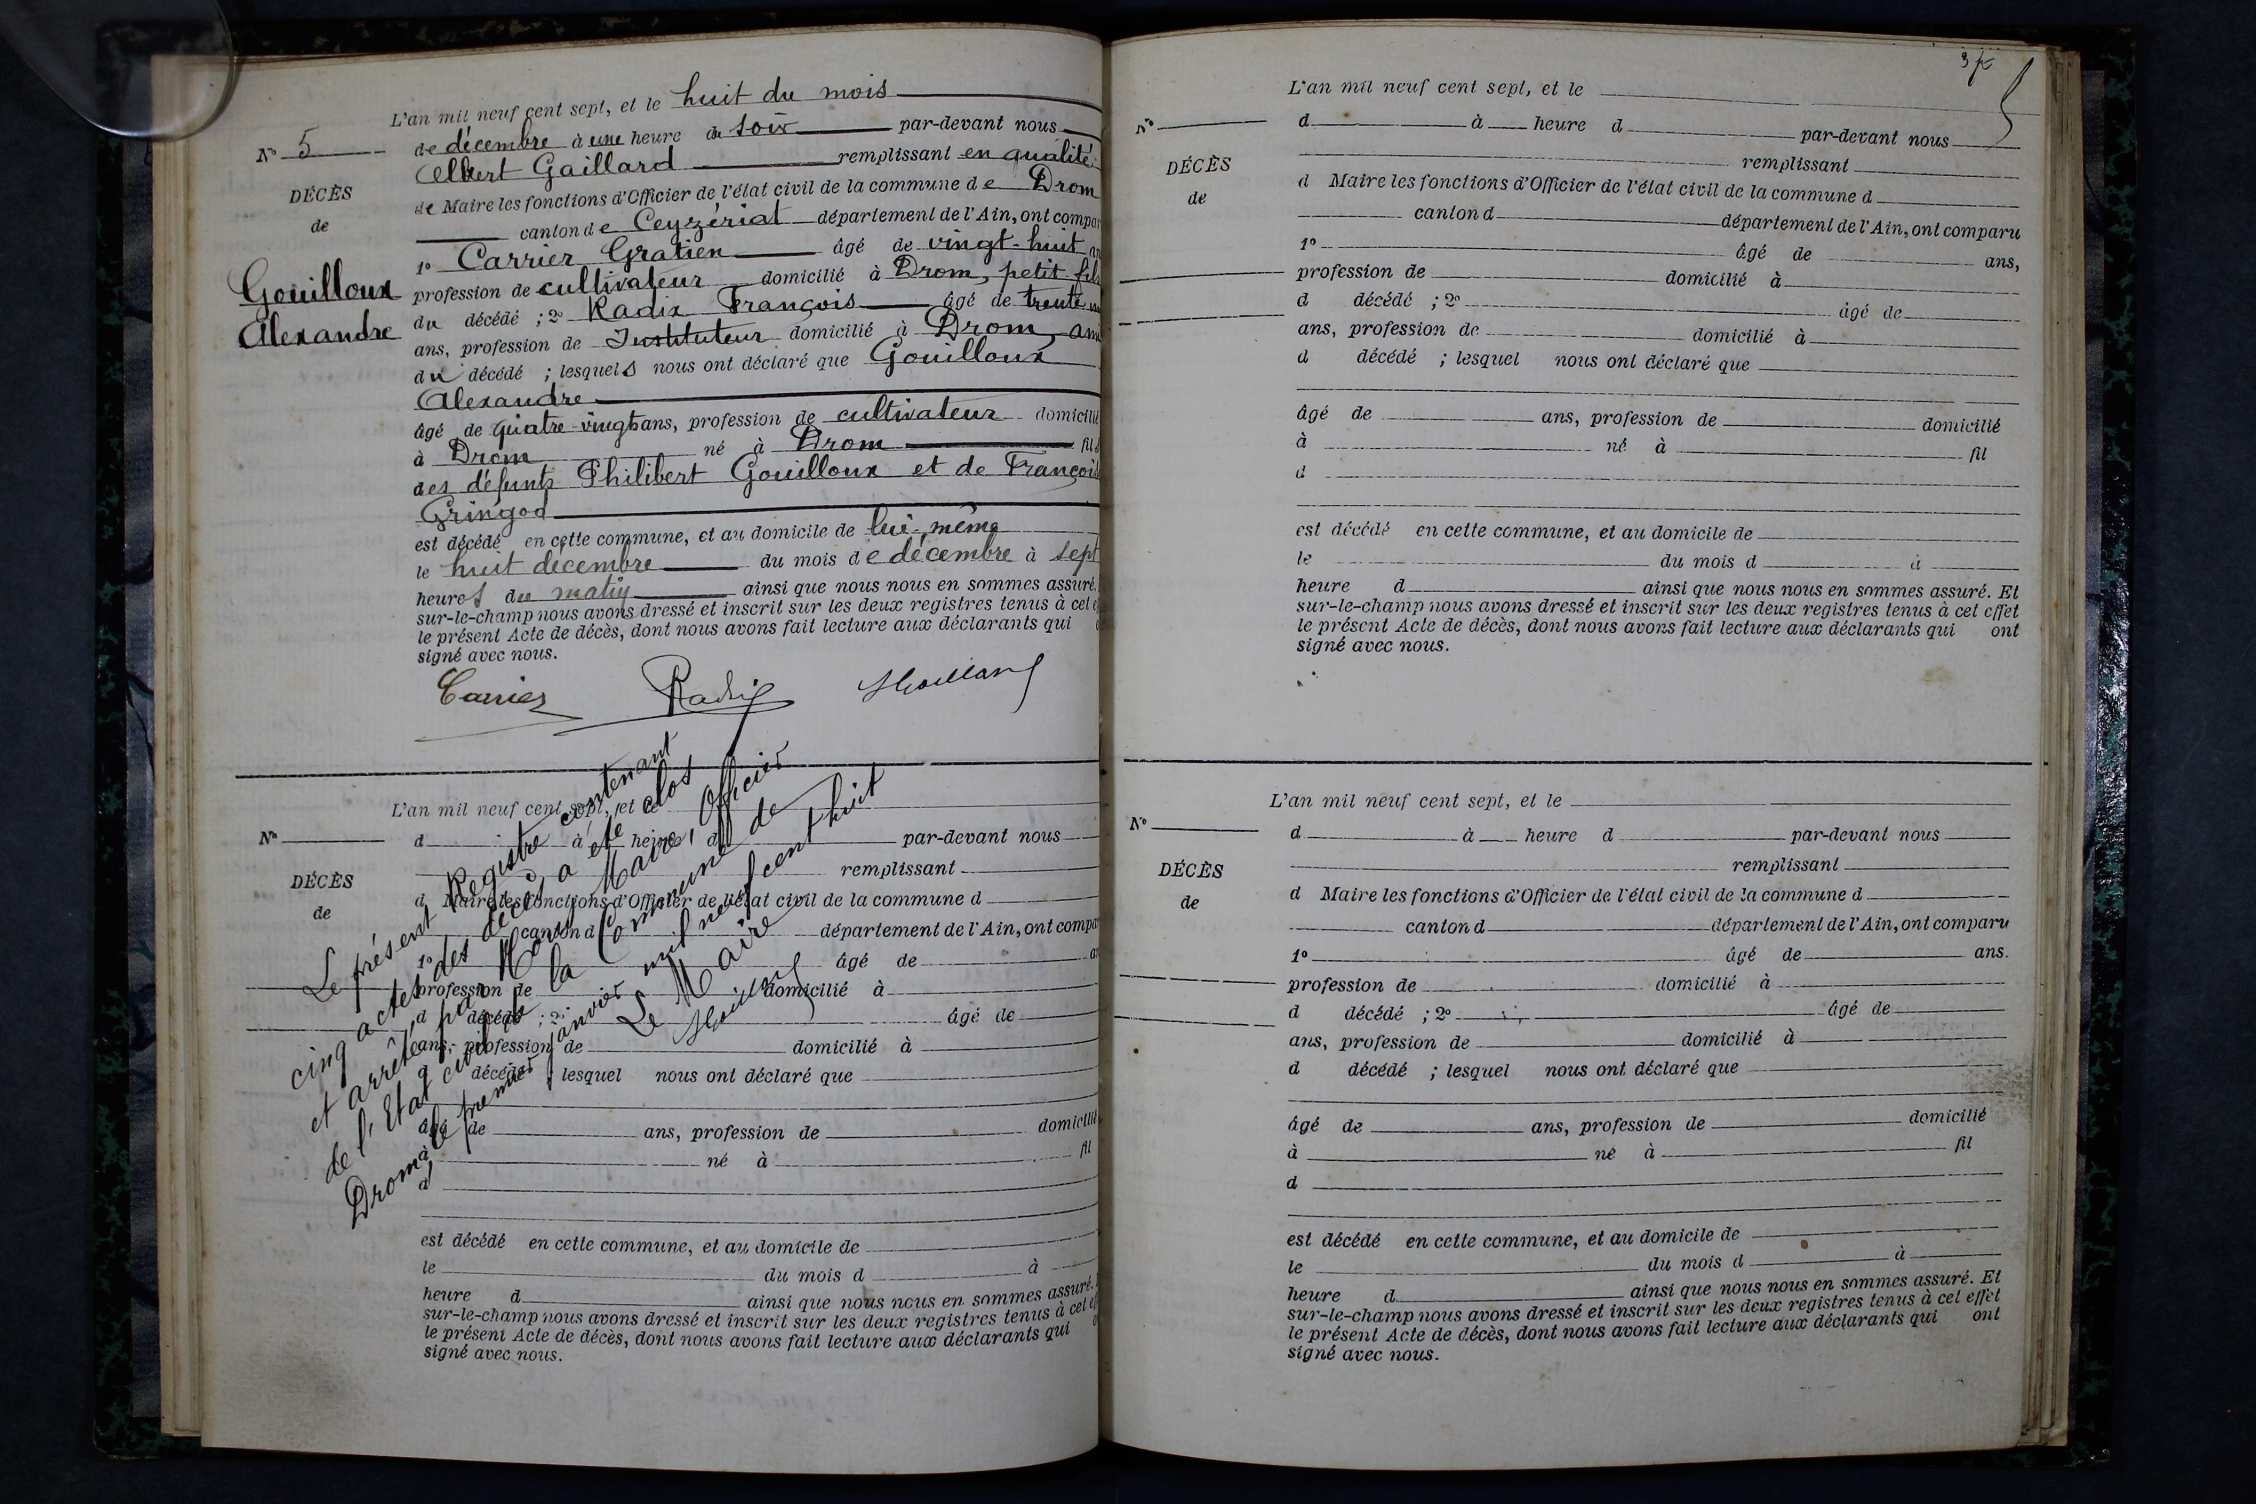 L'an mil neuf cent sept, et le huit du mois
de décembre à une heure du soir par-devant nous
Albert Gaillard remplissant en qualité
de Maire les fonctions d'Officier de l'état civil de la commune de Drom
canton de Ceyzériat département de l'Ain, ont compar
1º Carrier Gratien âgé de vingt-huit an
profession de cultivateur domicilié à Drom, petit-fils
du décédé ; 2º Radix François âgé de trente un
ans, profession de Instituteur domicilié à Drom, ami
du décédé ; lesquels nous ont déclaré que Gouilloux
Alexandre
âgé de quatre-vingts ans, profession de cultivateur domicilié
à Drom né à Drom fils
des défunts Philibert Gouilloux et de François
Gringod
est décédé en cette commune, et au domicile de lui-même
le huit décembre du mois de décembre à sept
heures du matin ainsi que nous nous en sommes assuré.
sur-le-champ nous avons dressé et inscrit sur les deux registres tenus à cet ef
le présent Acte de décès, dont nous avons fait lecture aux déclarants qui o
signé avec nous.
Carrier Radix AGaillard
Nº 5
DÉCÈS
de
Gouilloux
Alexandre
L'an mil neuf cent sept, et le
d à heure d par-devant nous
remplissant
d Maire les fonctions d'Officier de l'état civil de la commune d
canton d département de l'Ain, ont compar
1º âgé de an
profession de domicilié à
d décédé ; 2º âgé de
ans, profession de domicilié à
d décédé ; lesquel nous ont déclaré que
âgé de ans, profession de domicilié
à né à fil
d
est décédé en cette commune, et au domicile de
le du mois d à
heure d ainsi que nous nous en sommes assuré.
sur-le-champ nous avons dressé et inscrit sur les deux registres tenus à cet ef
le présent Acte de décès, dont nous avons fait lecture aux déclarants qui o
signé avec nous.
Nº
DÉCÈS
de
Le présent Registre contenant
cinq actes des décès, a été clos
et arrêté par Nous Maire, Officier
de l'Etat civil de la Commune de
Drom, le premier janvier mil neuf cent huit
Le Maire
AGaillard
L'an mil neuf cent sept, et le
d à heure d par-devant nous
remplissant
d Maire les fonctions d'Officier de l'état civil de la commune d
canton d département de l'Ain, ont comparu
1º âgé de ans,
profession de domicilié à
d décédé ; 2º âgé de
ans, profession de domicilié à
d décédé ; lesquel nous ont déclaré que
âgé de ans, profession de domicilié
à né à fil
d
est décédé en cette commune, et au domicile de
le du mois d à
heure d ainsi que nous nous en sommes assuré. Et
sur-le-champ nous avons dressé et inscrit sur les deux registres tenus à cet effet
le présent Acte de décès, dont nous avons fait lecture aux déclarants qui ont
signé avec nous.
Nº
DÉCÈS
de
L'an mil neuf cent sept, et le
d à heure d par-devant nous
remplissant
d Maire les fonctions d'Officier de l'état civil de la commune d
canton d département de l'Ain, ont comparu
1º âgé de ans.
profession de domicilié à
d décédé ; 2º âgé de
ans, profession de domicilié à
d décédé ; lesquel nous ont déclaré que
âgé de ans, profession de domicilié
à né à fil
d
est décédé en cette commune, et au domicile de
le du mois d à
heure d ainsi que nous nous en sommes assuré. Et
sur-le-champ nous avons dressé et inscrit sur les deux registres tenus à cet effet
le présent Acte de décès, dont nous avons fait lecture aux déclarants qui ont
signé avec nous.
Nº
DÉCÈS
de